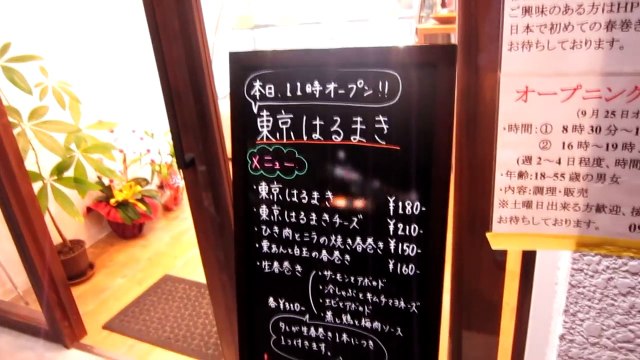 本日、11時オープン!!
東京はるまき
メニュー
・東京はるまき ¥180-
・東京はるまきチーズ ¥210-
・ひき肉とニラの焼き春巻き ¥150-
・栗あんと白玉の春巻き ¥160-
・生春巻き
・サーモンとアボカド
・冷しゃぶとキムチマヨネーズ
・エビとアボカド
・蒸し鶏と梅肉ソース
各¥310-
生春巻き1本につき
1つ付きます。
ご興味のある方はHP
日本で初めての春巻き
お待ちしております。
オープニング
(9月25日オ
・時間：① 8時30分～
② 16時～19時
(週2～4日程度、時間
・年齢：18~55歳の男女
・内容：調理・販売
※土曜日出来る方歓迎、
お待ちしております。
09